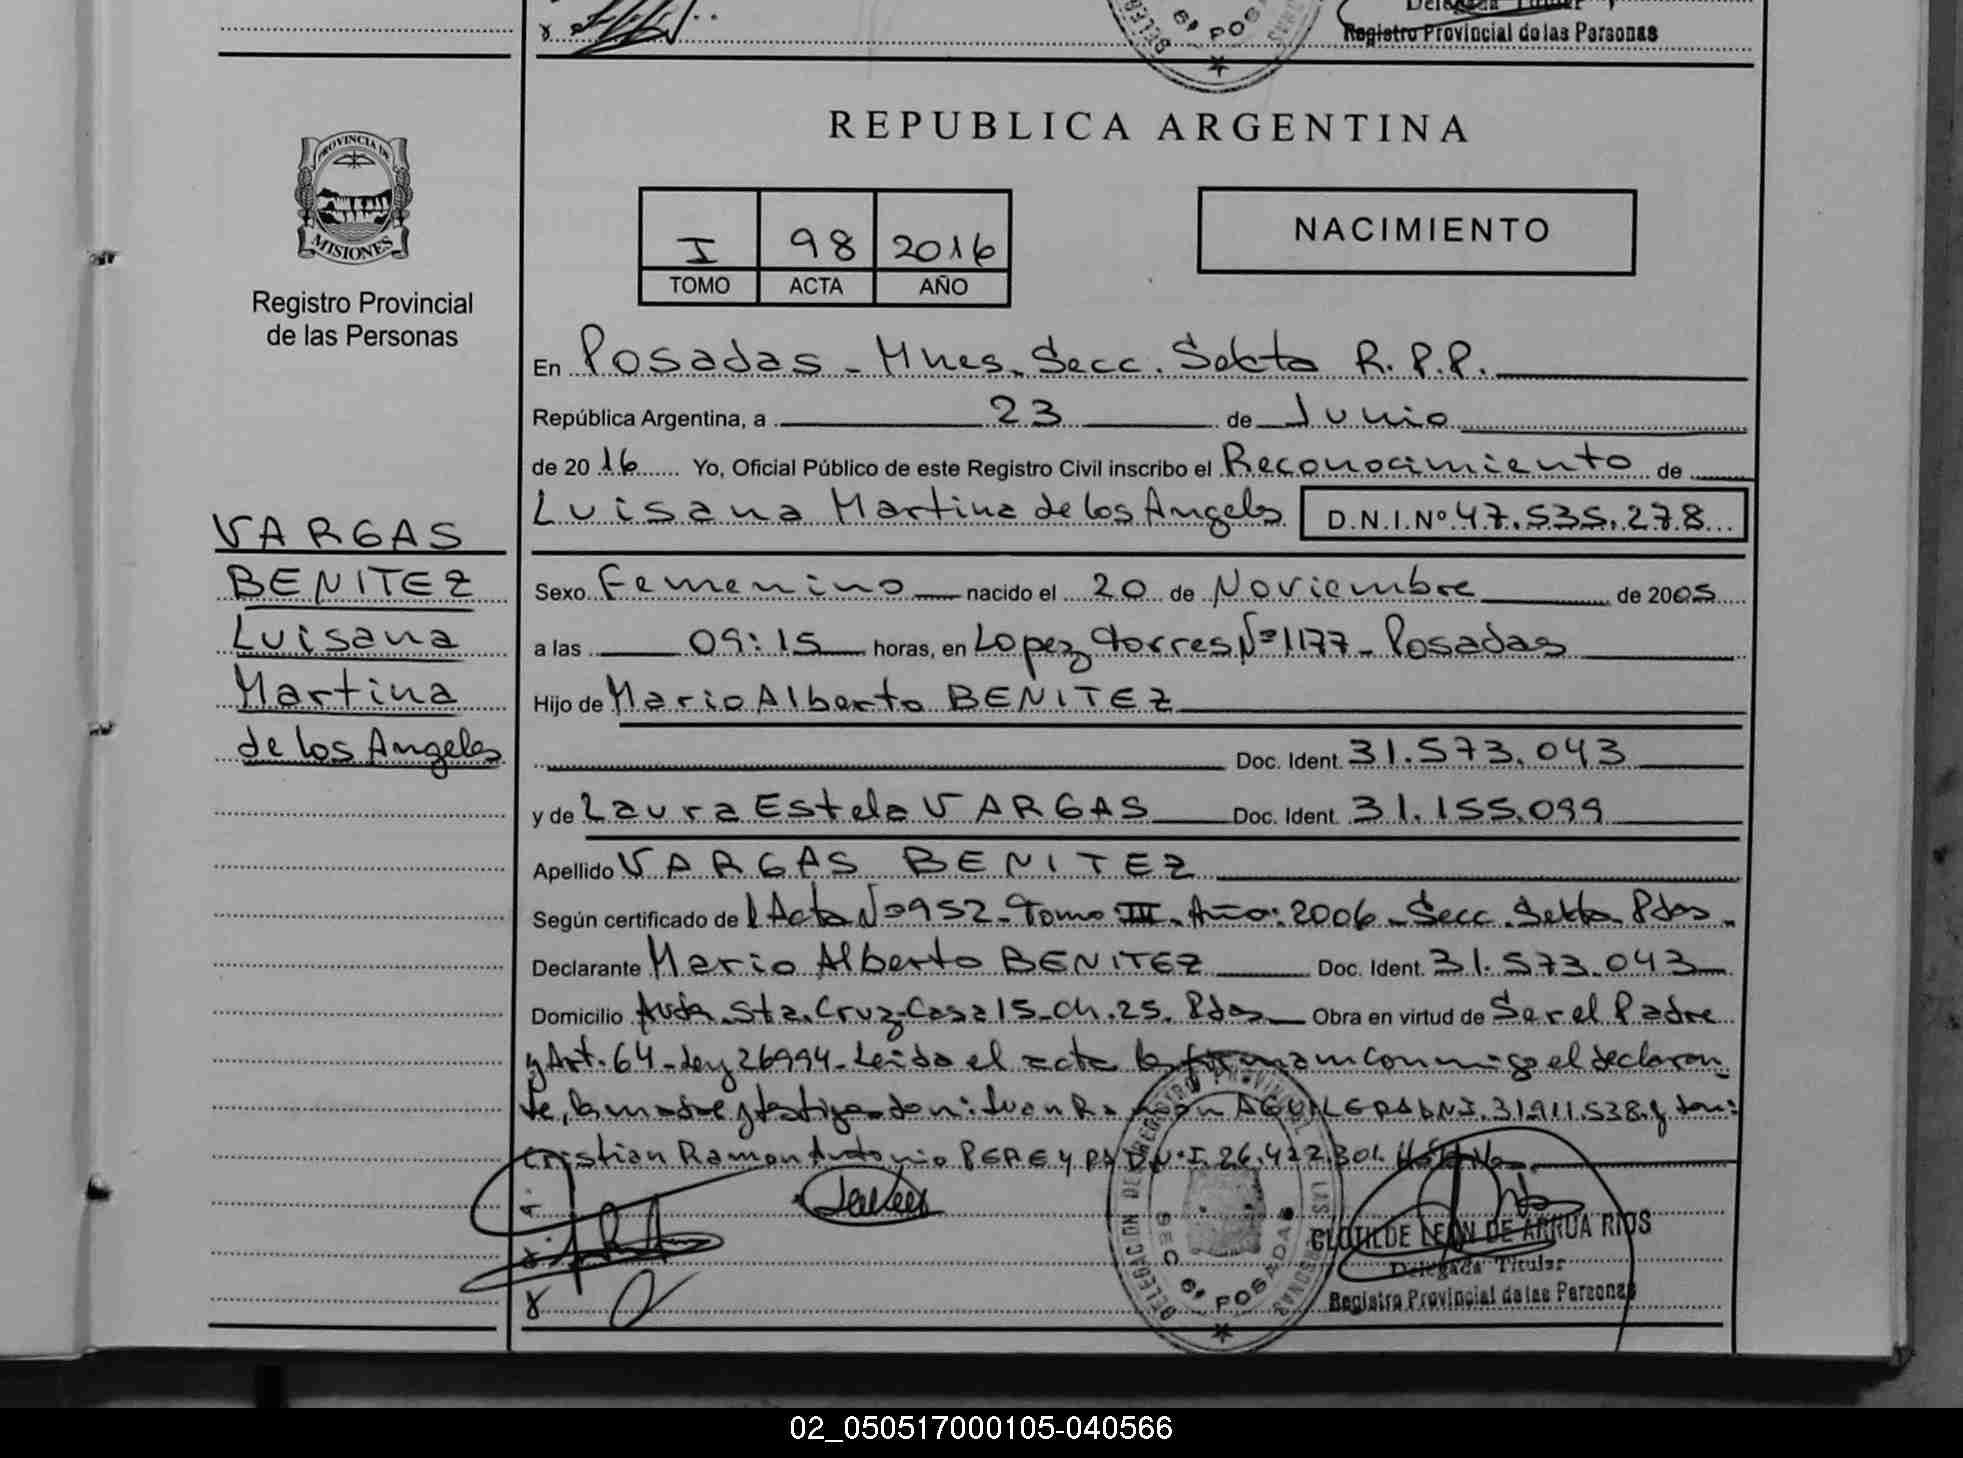 Delegada Titular
Registro Provincial de las Personas
REPUBLICA ARGENTINA
PROVINCIA DE
MISIONES
Registro Provincial
de las Personas
I 98 2016
TOMO ACTA AÑO
NACIMIENTO
En Posadas - Mnes. Secc. Sexta R.P.P.
República Argentina, a 23 de Junio
de 2016 Yo, Oficial Público de este Registro Civil inscribo el Reconocimiento de
Luisana Martina de los Angeles D.N.I.Nº 47.535.278
VARGAS
BENITEZ
Luisana
Martina
de los Angeles
Sexo Femenino nacido el 20 de Noviembre de 2005
a las 09:15 horas, en Lopez Torres Nº 1177 - Posadas
Hijo de Mario Alberto BENITEZ
Doc. Ident. 31.573.043
y de Laura Estela VARGAS Doc. Ident. 31.155.099
Apellido VARGAS BENITEZ
Según certificado de l Acta Nº 952 - Tomo III - Año: 2006 - Secc. Sexta Pdas -
Declarante Mario Alberto BENITEZ Doc. Ident. 31.573.043
Domicilio Avda. Sta. Cruz - Casa 15 - Ch. 25. Pdas Obra en virtud de Ser el Padre
y Art. 64 - Ley 26994 - Leida el acta la firman conmigo el declaran-
te, la madre y testigos don: Juan Ramon AGUILERA DNI. 31.911.538 y don:
Cristian Ramon Antonio PEREYRA D.N.I. 26.422.301.
DELEGACION DE REGISTRO PROVINCIAL LAS PERSONAS
SEC 6ª POSADAS
CLOTILDE LEAN DE ARRUA RIOS
Delegada Titular
Registro Provincial de las Personas
02_050517000105-040566